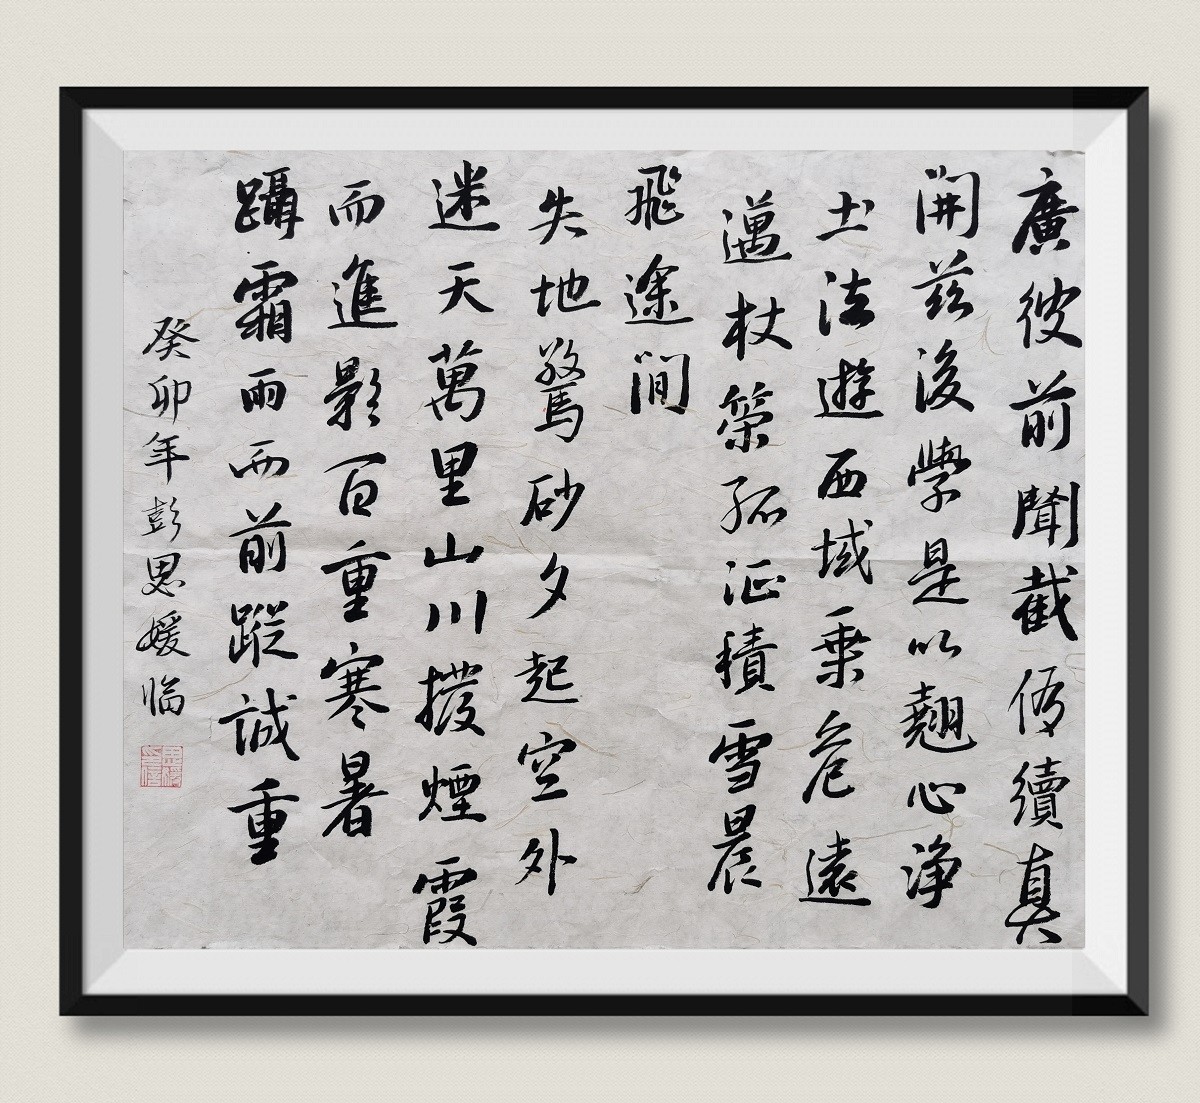 廣彼前聞截偽續真
開茲後學是以翹心淨
土法遊西域乘危遠
邁杖策孤征積雪晨
飛途間
失地驚砂夕起空外
迷天萬里山川撥煙霞
而進影百重寒暑
躡霜雨而前蹤誠重
癸卯年彭思媛临